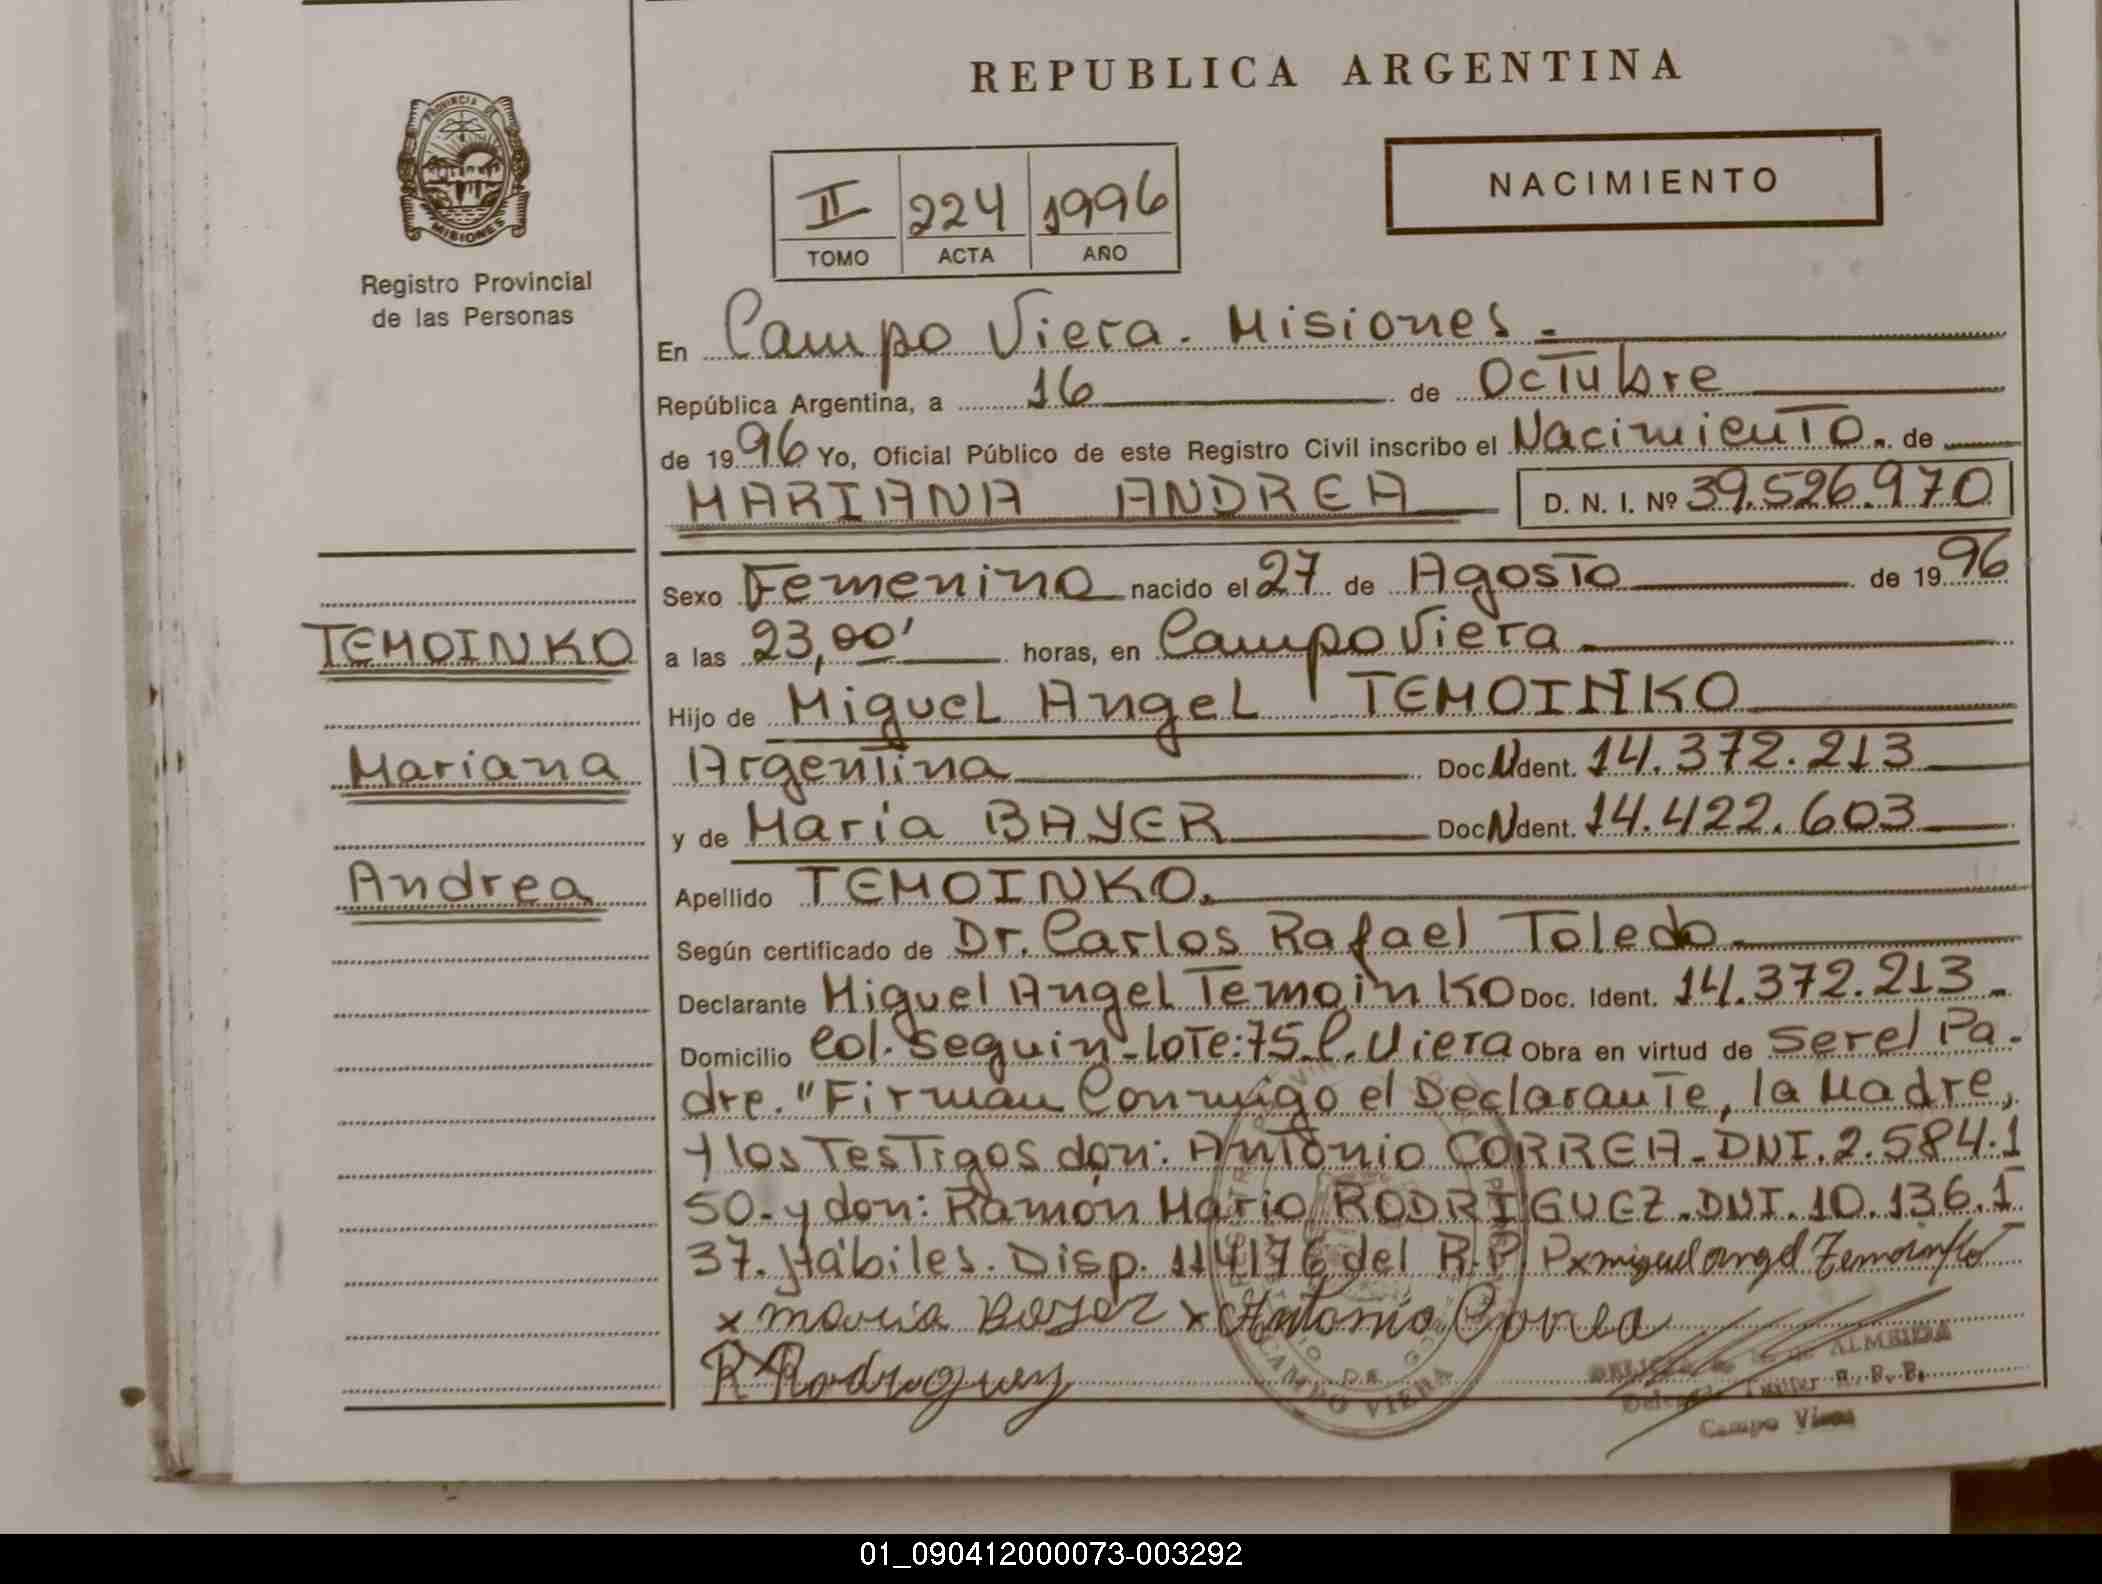 REPUBLICA ARGENTINA
PROVINCIA DE
MISIONES
Registro Provincial
de las Personas
NACIMIENTO
II 224 1996
TOMO ACTA AÑO
En Campo Viera - Misiones.-
República Argentina, a 16 de Octubre
de 1996 Yo, Oficial Público de este Registro Civil inscribo el Nacimiento. de
MARIANA ANDREA D. N. I. Nº 39.526.970
Sexo Femenino nacido el 27 de Agosto de 1996
TEMOINKO
a las 23,00' horas, en Campo Viera
Hijo de Miguel Angel TEMOINKO
Mariana
Argentina Doc. Ident. 14.372.213
y de María BAYER Doc. Ident. 14.422.603
Andrea
Apellido TEMOINKO.
Según certificado de Dr. Carlos Rafael Toledo.
Declarante Miguel Angel Temoinko Doc. Ident. 14.372.213.-
Domicilio Col. Seguin - Lote: 75. C. Viera Obra en virtud de ser el Pa-
dre. "Firman Conmigo el Declarante, la Madre,
y los Testigos don: Antonio CORREA - DNI. 2.584.1
50.- y don: Ramón Mario RODRIGUEZ. DNI. 10.136.1
37. Hábiles. Disp. 114/76 del R.P.P x miguel angel Temoinko
x maria Bayer x Antonio Correa
R Rodriguez
DE ALMEIDA
Campo Viera
CAMPO VIERA
01_090412000073-003292